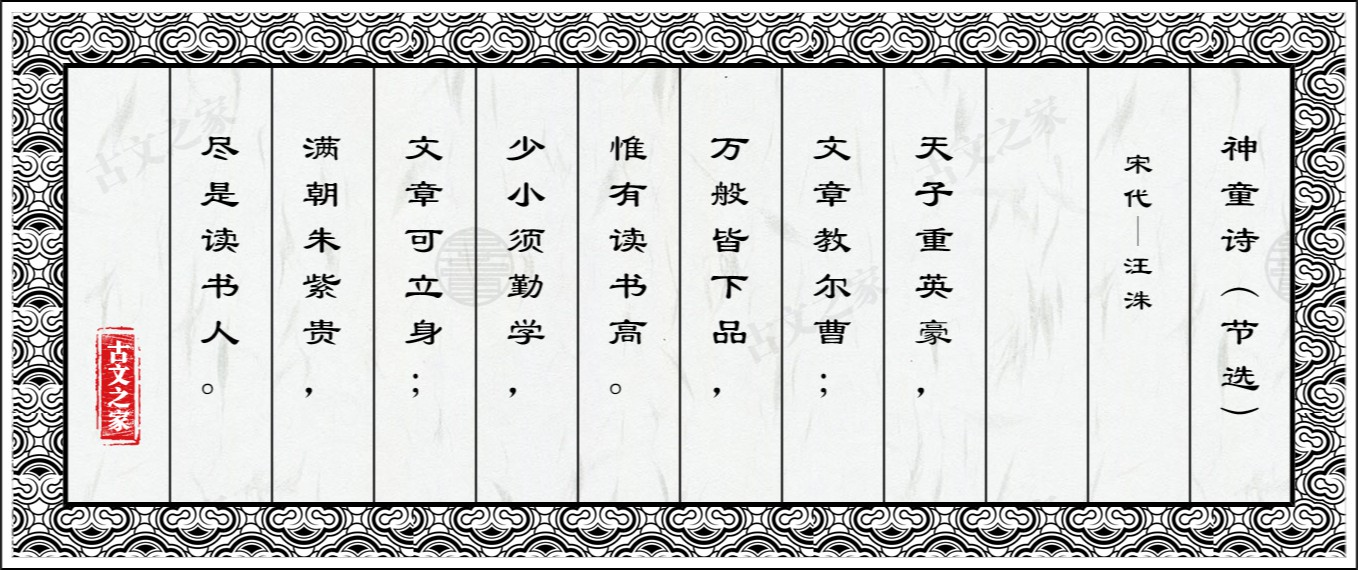 神童诗（节选）
宋代—汪洙
天子重英豪，
文章教尔曹；
万般皆下品，
惟有读书高。
少小须勤学，
文章可立身；
满朝朱紫贵，
尽是读书人。
古文之家
古文之家
古文之家
古文之家